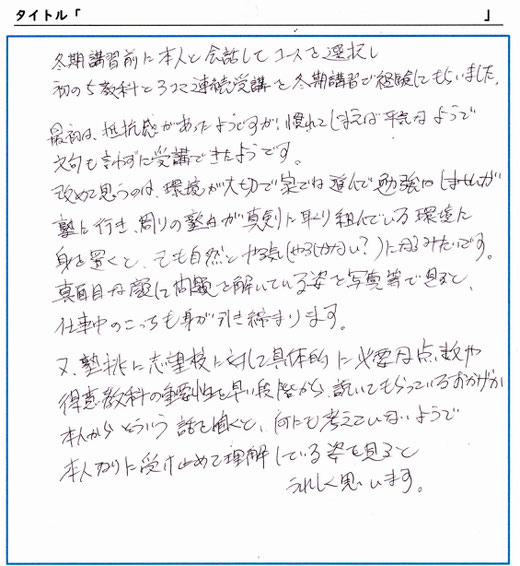 タイトル「 」
冬期講習前に本人と会話してコースを選択し
初の5教科と3コマ連続受講を冬期講習で経験してもらいました。
最初は、抵抗感があったようですが、慣れてしまえば平気なようで
文句も言わずに受講できたようです。
改めて思うのは、環境が大切で家では進んで勉強はしませんが
塾に行き、周りの塾生が真剣に取り組んでいる環境に
身を置くと、とても自然とやる気(やるしかない?)になるみたいです。
真面目な顔して問題を解いている姿を写真等で見ると、
仕事中のこっちも身が引き締まります。
又、塾長に志望校に対して具体的に必要な点数や
得意教科の重要性を早い段階から説いてもらっているおかげか
本人からそういう話を聞くと、何にも考えていないようで
本人なりに受け止めて理解している姿を見ると
うれしく思います。